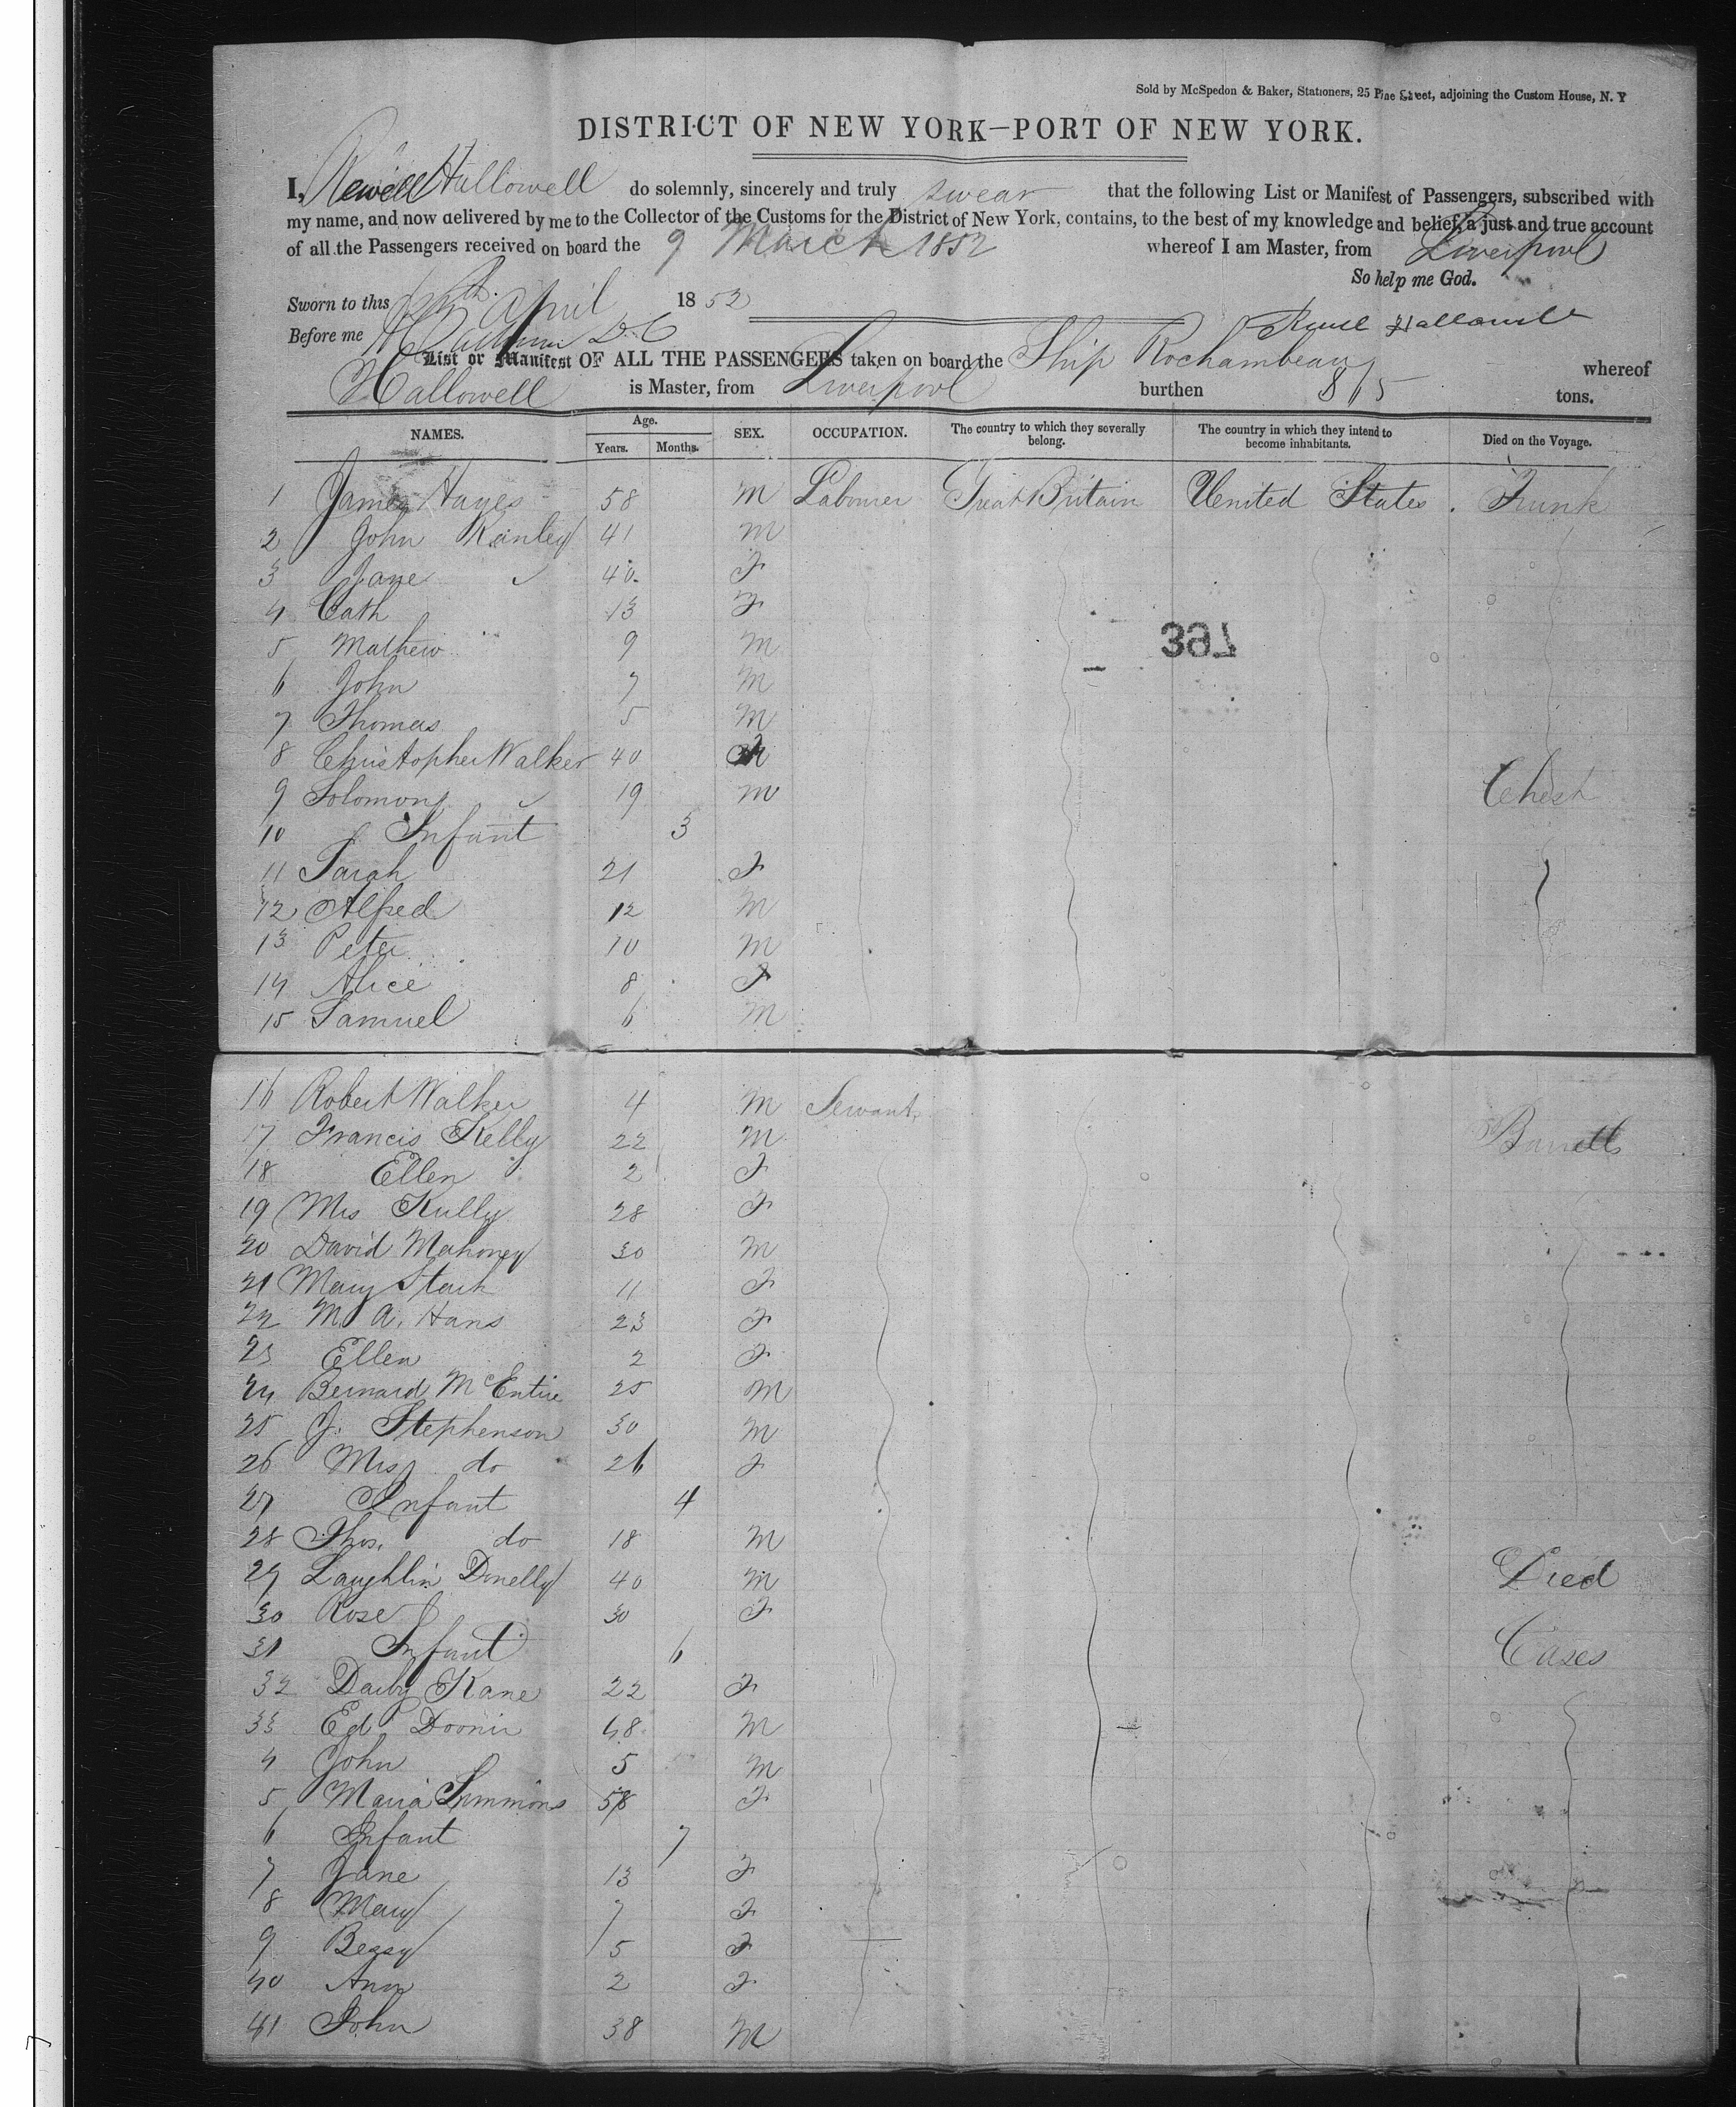 Sold by McSpedon & Baker, Stationers, 25 Pine Street, adjoining the Custom House, N. Y
DISTRICT OF NEW YORK—PORT OF NEW YORK.
I, Hallowell do solemnly, sincerely and truly swear that the following List or Manifest of Passengers, subscribed with
my name, and now delivered by me to the Collector of the Customs for the District of New York, contains, to the best of my knowledge and belief, a just and true account
of all the Passengers received on board the 9 March 1852 whereof I am Master, from Liverpool
So help me God.
Sworn to this April 1852
Before me
List or Manifest OF ALL THE PASSENGERS taken on board the Ship Rochambeau whereof
Hallowell is Master, from Liverpool burthen 865 tons.
NAMES. Age. Years. Months. SEX. OCCUPATION. The country to which they severally belong. The country in which they intend to become inhabitants. Died on the Voyage.
1 James Hayes 58 M Labourer Great Britain United States. Trunk
2 John Kanley 41 M
3 Jane 40 F
4 Cath 13 F
5 Mathew 9 M
397
6 John 7 M
7 Thomas 5 M
8 Christopher Walker 40 M
9 Solomon 19 M Chest
10 Infant 3
11 Sarah 21 F
12 Alfred 12 M
13 Peter 10 M
14 Alice 8 F
15 Samuel 6 M
16 Robert Walker 4 M Servant
17 Francis Kelly 22 M
18 Ellen 2 F
19 Mrs Kully 28 F
20 David Mahoney 30 M
21 Mary Stark 11 F
22 M. A. Hans 23 F
23 Ellen 2 F
24 Bernard McEntire 25 M
25 J. Stephenson 30 M
26 Mrs do 26 F
27 Infant 4
28 Thos. do 18 M
29 Laughlin Donelly 40 M Died
30 Rose 30 F
31 Infant 6 Cases
32 Darby Kane 22 F
33 Ed. 48 M
4 John 5 M
5 Maria Simmons 58 F
6 Infant 7
7 Jane 13 F
8 Mary 7 F
9 Bessy 5 F
40 Ann 2 F
41 John 38 M